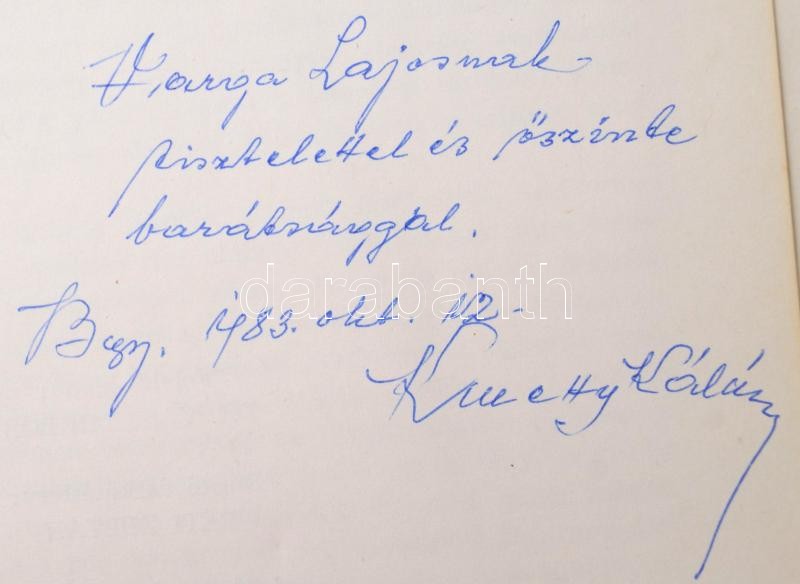 Varga Lajosnak
tisztelettel és őszinte
barátsággal.
darabanth
Bgy. 1983. okt. 12.
Kmetty Kálmán